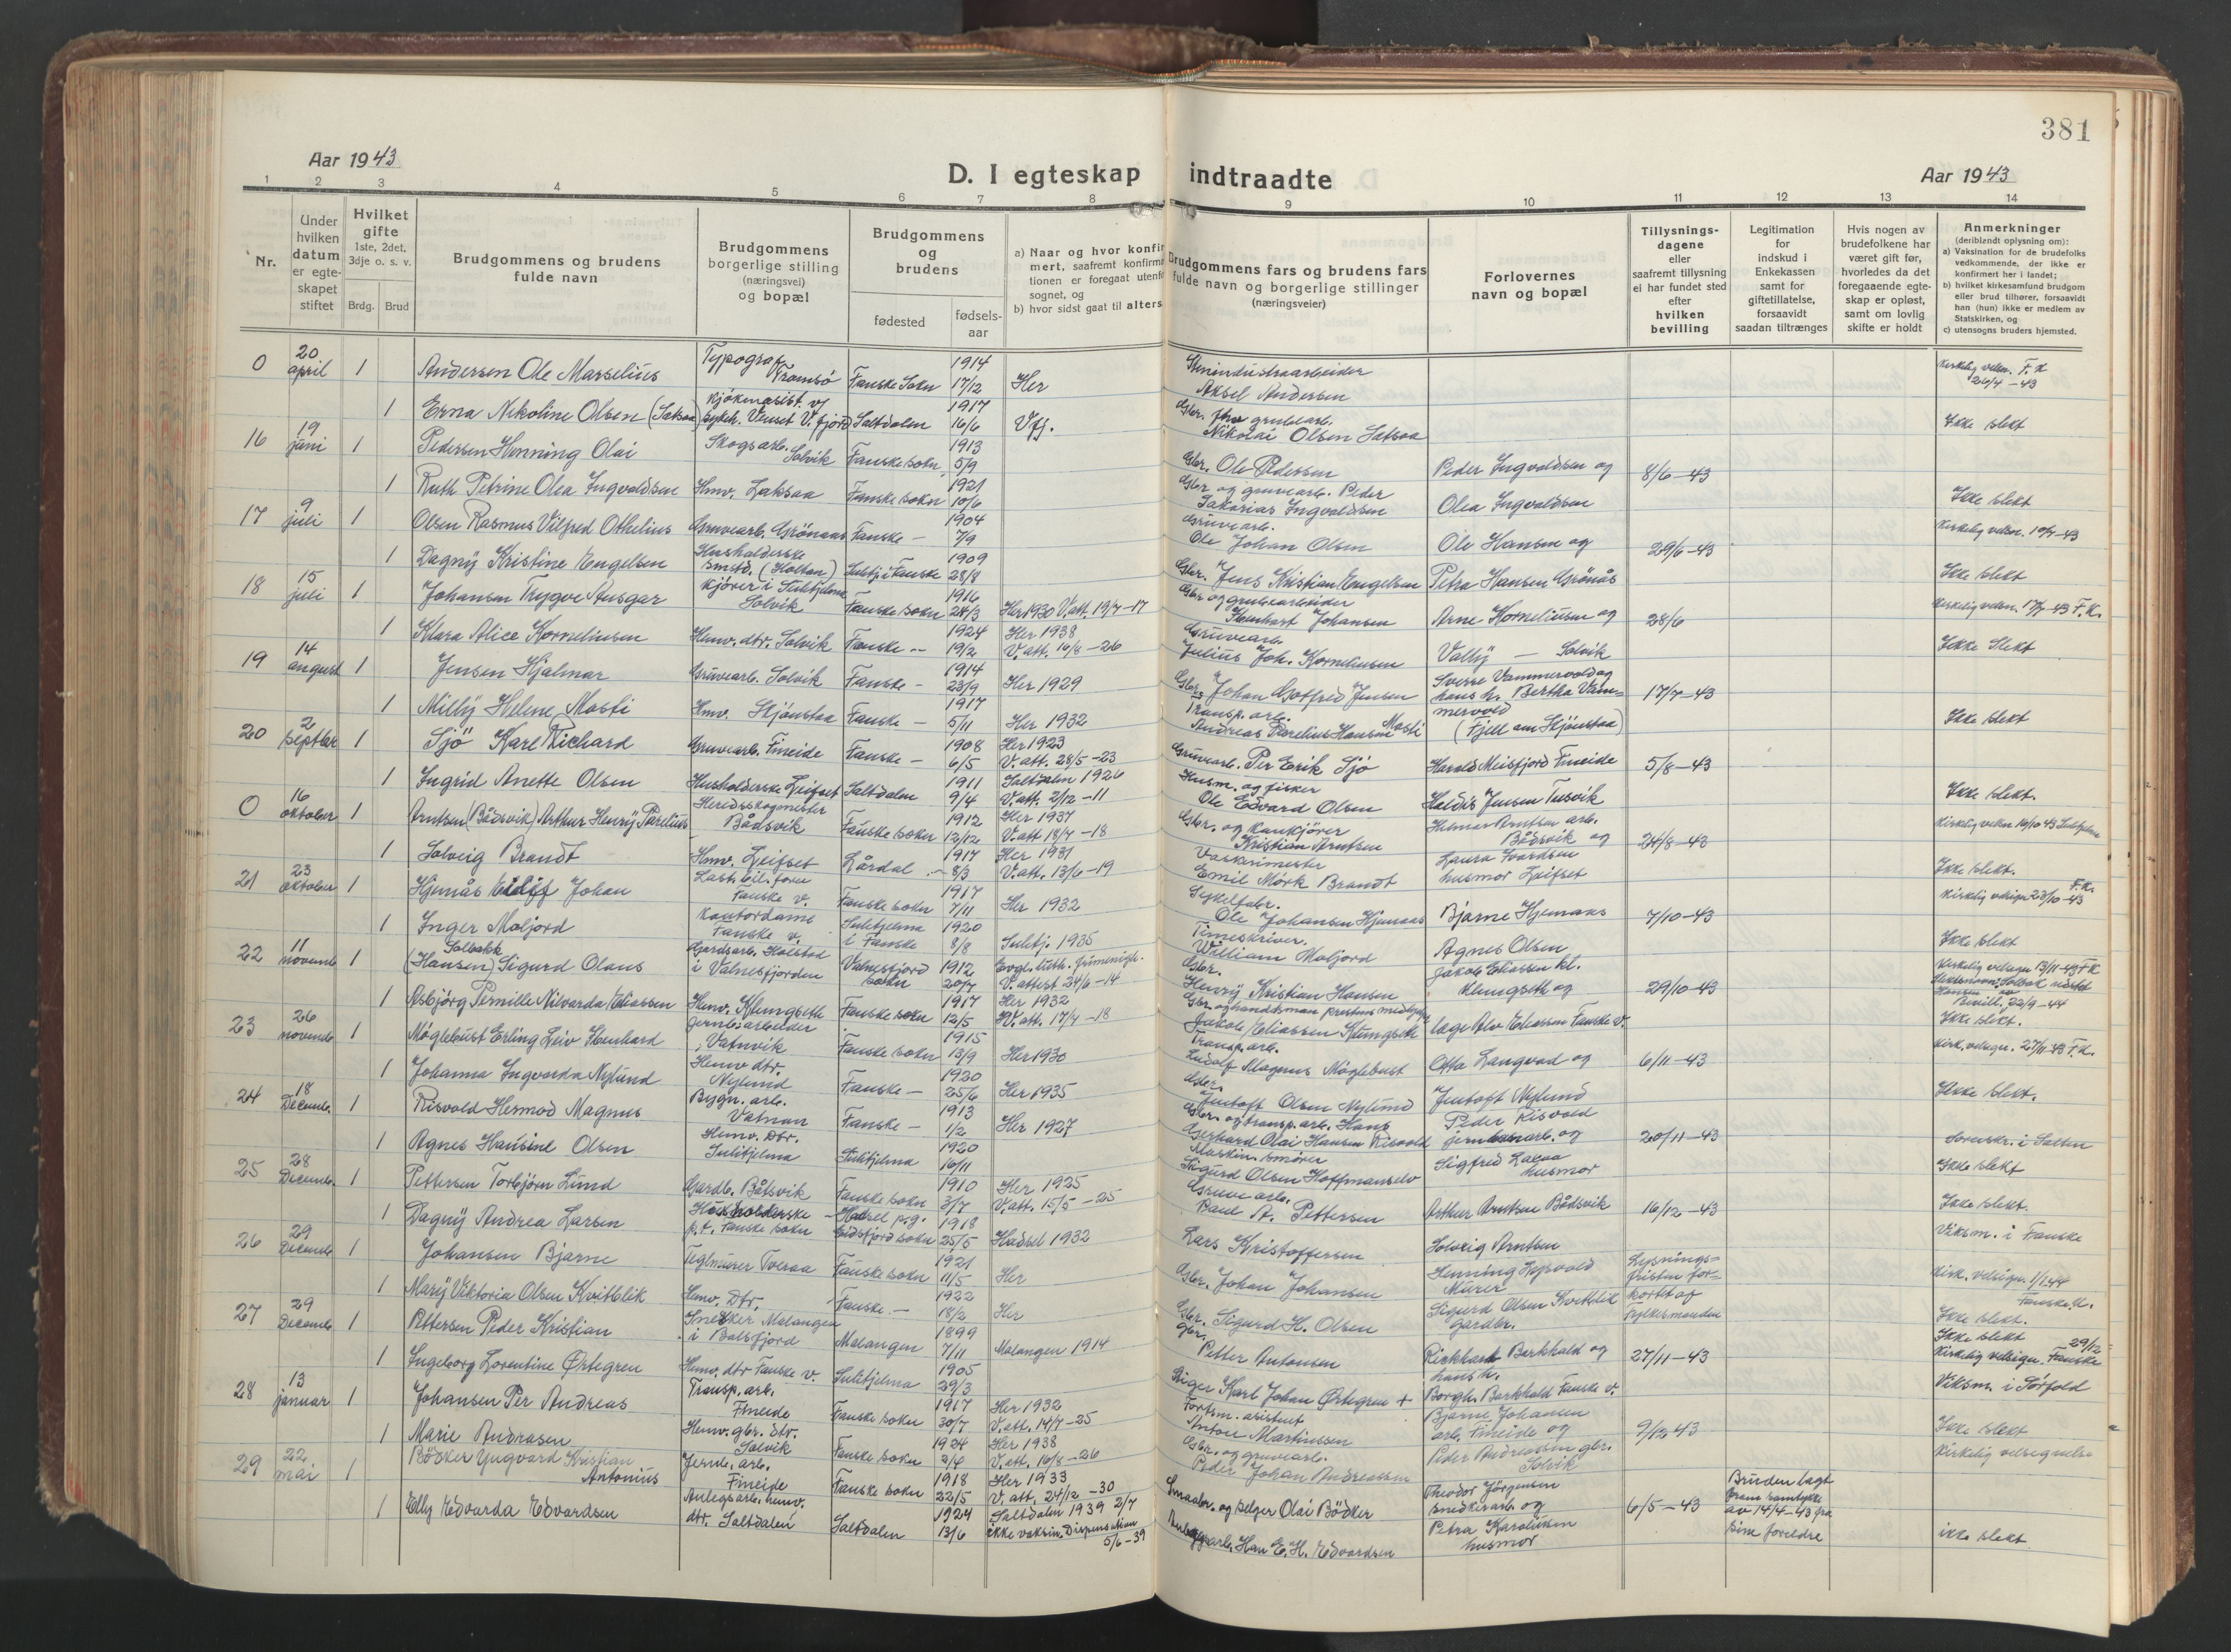 381
Aar 1943
D. I egteskap indtraadte
Aar 1943
1 2 3 4 5 6 7 8 9 10 11 12 13 14
Nr.
Under
hvilken
datum
er egte-
skapet
stiftet
Hvilket
gifte
1ste, 2det,
3dje o. s. v.
Brdg. Brud
Brudgommens og brudens
fulde navn
Brudgommens
borgerlige stilling
(næringsvei)
og bopæl
Brudgommens
og
brudens
fødested
fødsels-
aar
a) Naar og hvor konfir
mert, saafremt konfirma
tionen er foregaat utenfo
sognet, og
b) hvor sidst gaat til alters
Brudgommens fars og brudens fars
fulde navn og borgerlige stillinger
(næringsveier)
Forlovernes
navn og bopæl
Tillysnings-
dagene
eller
saafremt tillysning
ei har fundet sted
efter
hvilken
bevilling
Legitimation
for
indskud i
Enkekassen
samt for
giftetillatelse,
forsaavidt
saadan tiltrænges
Hvis nogen av
brudefolkene har
været gift før,
hvorledes da det
foregaaende egte-
skap er opløst,
samt om lovlig
skifte er holdt
Anmerkninger
(deriblandt oplysning om):
a) Vaksination for de brudefolks
vedkommende, der ikke er
konfirmert her i landet;
b) hvilket kirkesamfund brudgom
eller brud tilhører, forsaavidt
han (hun) ikke er medlem av
Statskirken, og
c) utensogns bruders hjemsted.
0 20 april 1 Andersen Ole Marselius Typograf Tromsö Fauske Sokn 1914 17/12 Her Stenindustriarbeider Aksel Andersen Kirkelig velsn. F.K. 26/4-43
1 Erna Nikoline Olsen (Satsaa) Kjökenasist. v/ sykeh. Venset V.fjord Saltdalen 1917 16/6 Vfj. Gbr. fhv grubearb. Nikolai Olsen Satsaa Ikke slekt
16 19 juni 1 Pedersen Henning Olai Skogsarb. Solvik Fauske sokn 1913 5/9 Gbr. Ole Pedersen Peder Ingvaldsen og 8/6-43
1 Ruth Petrine Olea Ingvaldsen Hmv. Laksaa Fauske sokn 1921 10/6 Gbr og gruvearb. Peder Sakarias Ingvaldsen Olea Ingvaldsen Ikke slekt
17 9 juli 1 Olsen Rasmus Vilfred Othelius Gruvearb. Grönaas Fauske - 1904 7/9 Gruvearb. Ole Johan Olsen Ole Hansen og 29/6-43 Kirkelig velsn. 10/7-43
1 Dagny Kristine Engelsen Husholderske smstd. (Holtan) Sulitj. i Fauske 1909 28/8 Gbr. Jens Kristian Engelsen Petra Hansen Grönås Ikke slekt
18 15 juli 1 Johansen Trygve Ansgar Kjörer i Sulitjelma Solvik Fauske sokn 1916 24/3 Her 1930 V.att. 19/7-17 Gbr og grubearbeider Henhart Johansen Arne Korneliusen og 28/6 Kirkelig velsn. 17/7-43 F.K.
1 Klara Alice Korneliusen Hmv. dtr. Solvik Fauske - 1924 19/2 Her 1938 V.att. 16/8-26 Gruvearb. Julius Joh. Korneliusen Valby - Solvik Ikke Slekt
19 14 august 1 Jensen Hjalmar Gruvearb. Solvik Fauske - 1914 23/9 Her 1929 Gbr. Johan Gotfred Jensen Sverre Vammervold og hans h. Bertha Vammervold 17/7-43
1 Milly Helene Mosti Hmv. Skjönstaa Fauske - 1917 5/11 Her 1932 Transp. arb. Andreas Parelius Hansen Mosti (Fjell am Skjönstaa) Ikke slekt
20 2 septbr 1 Sjö Karl Richard Gruvearb. Fineide Fauske - 1908 6/5 Her 1923 V.att. 28/5-23 Gruvearb. Per Erik Sjö Harald Meisfjord Fineide 5/8-43
1 Ingrid Anette Olsen Husholderske Leifset Saltdalen 1911 9/4 Saltdalen 1926 V.att. 2/12-11 Husm. og fisker Ole Edvard Olsen Haldis Jensen Tusvik Ikke slekt.
0 16 oktober 1 Arntsen (Bådsvik) Arthur Henry Parelius Herredsskogmester Bådsvik Fauske sokn 1912 12/12 Her 1937 V.att 18/7-18 Gbr. og Kankjörer Kristian Arntsen Hilmar Arntsen arb. Bådsvik og 24/8-43 Kirkelig velsn 16/10 43 Sulitjelma
1 Solveig Brandt Hmv. Leifset Lårdal - 1917 8/3 Her 1931 V.att. 13/6-19 Vaskrimester Emil Mörk Brandt Laura Ivardsen husmor Leifset Ikke slekt.
21 23 oktober 1 Hjemås Eiliff Johan Lastebil. forer Fauske v. Fauske sokn 1917 7/11 Her 1932 Sykelfabr. Ole Johansen Hjemaas Bjarne Hjemaas 7/10-43 Kirkelig velsign 23/10-43 F.K.
1 Inger Moljord Kontordame Fauske v. Sulitjelma i Fauske 1920 8/8 Sulitj. 1935 Timeskriver. William Moljord Agnes Olsen Ikke slekt
22 11 novemb 1 Solbakk (Hansen) Sigurd Olaus Gardsarb. Holstad i Valnesfjorden Valnesfjord sokn 1912 20/7 Evgl. luth. frimenigh. V.attest 24/6-14 Gbr. Henry Kristian Hansen Jakob Eliassen kl. Klungseth og 29/10-43 Kirkelig velsign 13/11-43 F.K. Bevill. 22/9-44
1 Asbjörg Pernille Nilvarda Eliassen Hmv. Klungseth Fauske sokn 1917 12/5 Her 1932 V.att. 17/7-18 Gbr og handtsman prestens medhjelper Jakob Eliassen Klungseth lage Alv Eliassen Fauske v. Ikke slekt.
23 26 novemb 1 Möglebust Erling Leiv Henhard Jernb. arbeider Vatnvik Fauske sokn 1915 13/9 Her 1930 Transp. arb. Ludolf Magnus Möglebust Otto Langvad og 6/11-43 Kirk. velsign. 27/11-43 F.K.
1 Johanna Ingvarda Nylund Hmv dtr. Nylund Fauske - 1920 25/6 Her 1935 Gbr. Jentoft Olsen Nylund Jentoft Nylund Ikke slekt.
24 18 Decemb. 1 Risvold Hermod Magnus Bygn. arb. Vatnan Fauske - 1913 1/2 Her 1927 Gbr. og transp. arb. Hans Gerhard Olai Hansen Risvold Peder Risvold jernbanarb. og 20/11-43
1 Agnes Hansine Olsen Hmv. dtr. Sulitjelma Sulitjelma 1920 16/11 Maskin. smörer Sigurd Olsen Hoffmanselv Sigfred Laxaa husmor Sorenskr. i Salten Ikke slekt
25 28 Decemb. 1 Pettersen Torbjörn Lund Gardb. Båtsvik Fauske sokn 1910 3/7 Her 1925 V.att. 15/5-25 Gruve arb. Paul A. Pettersen Arthur Arntsen Bådsvik 16/12-43 Ikke slekt.
1 Dagny Andrea Larsen Husholderske p.t. Fauske sokn Hadsel p.g. Eidsfjord sokn 1918 25/5 Hadsel 1932 Lars Kristoffersen Solveig Arntsen Viksm. i Fauske
26 29 Decemb 1 Johansen Bjarne Teglmurer Tveraa Fauske sokn 1921 11/5 Her Gbr. Johan Johansen Henning Leivold Murer Lysnings-fristen for-kortet af Fylkesmanden Kirk. velsign. 1/1 44 Fauske K.
1 Mary Viktoria Olsen Kvitblik Hmv. Dtr. Fauske - 1922 18/2 Her Gbr. Sigurd H. Olsen Sigurd Olsen Kvitblik gardbr. Ikke slekt.
27 29 Decemb 1 Pettersen Peder Kristian Snekker Malangen i Balsfjord Malangen 1899 7/11 Malangen 1914 Gbr. Petter Antonsen Rickhard Barkhald og hans h. 27/11-43 Ikke slekt Kirkelig velsign. 29/12 Fauske
1 Ingeborg Lorentine Ørtegren Hmv. dtr Fauske v. Sulitjelma 1905 29/3 Stiger Karl Johan Ørtegren + Borgh. Barkhald Fauske v. Viksm. i Sörfold
28 13 januar 1 Johansen Per Andreas Transp. arb. Fineide Fauske sokn 1917 30/7 Her 1932 V.att. 14/7-25 Fortm. asistent Anton Martinssen Bjarne Johansen arb. Fineide og 9/12 43 Ikke slekt
1 Marie Andreasen Hmv. gbr. dtr. Solvik Fauske sokn 1924 2/4 Her 1938 V.att. 16/8-26 Gbr. og gruvearb. Peder Johan Andreassen Peder Andreassen gbr. Solvik Kirkelig velsignelse
29 22 mai 1 Bödker Yngvard Kristian Antonius Jernb. arb. Fineide Fauske sokn 1918 22/5 Her 1933 V.att. 24/12-30 Smaabr. og selger Olai Bödker Theodor Jörgensen snedkerarb. og 6/5-43 Bruden lagt fram samtykke av 14/4-43 fra sine foreldre
1 Elly Edvarda Edvardsen Anlegsarb. hmv. dtr. Saltdalen Saltdalen 1924 13/6 Saltdalen 1939 2/7 ikke vaksin. Dispensation 5/6-39 Anleggsarb. Han E. H. Edvardsen Petra Karoliusen husmor ikke slekt